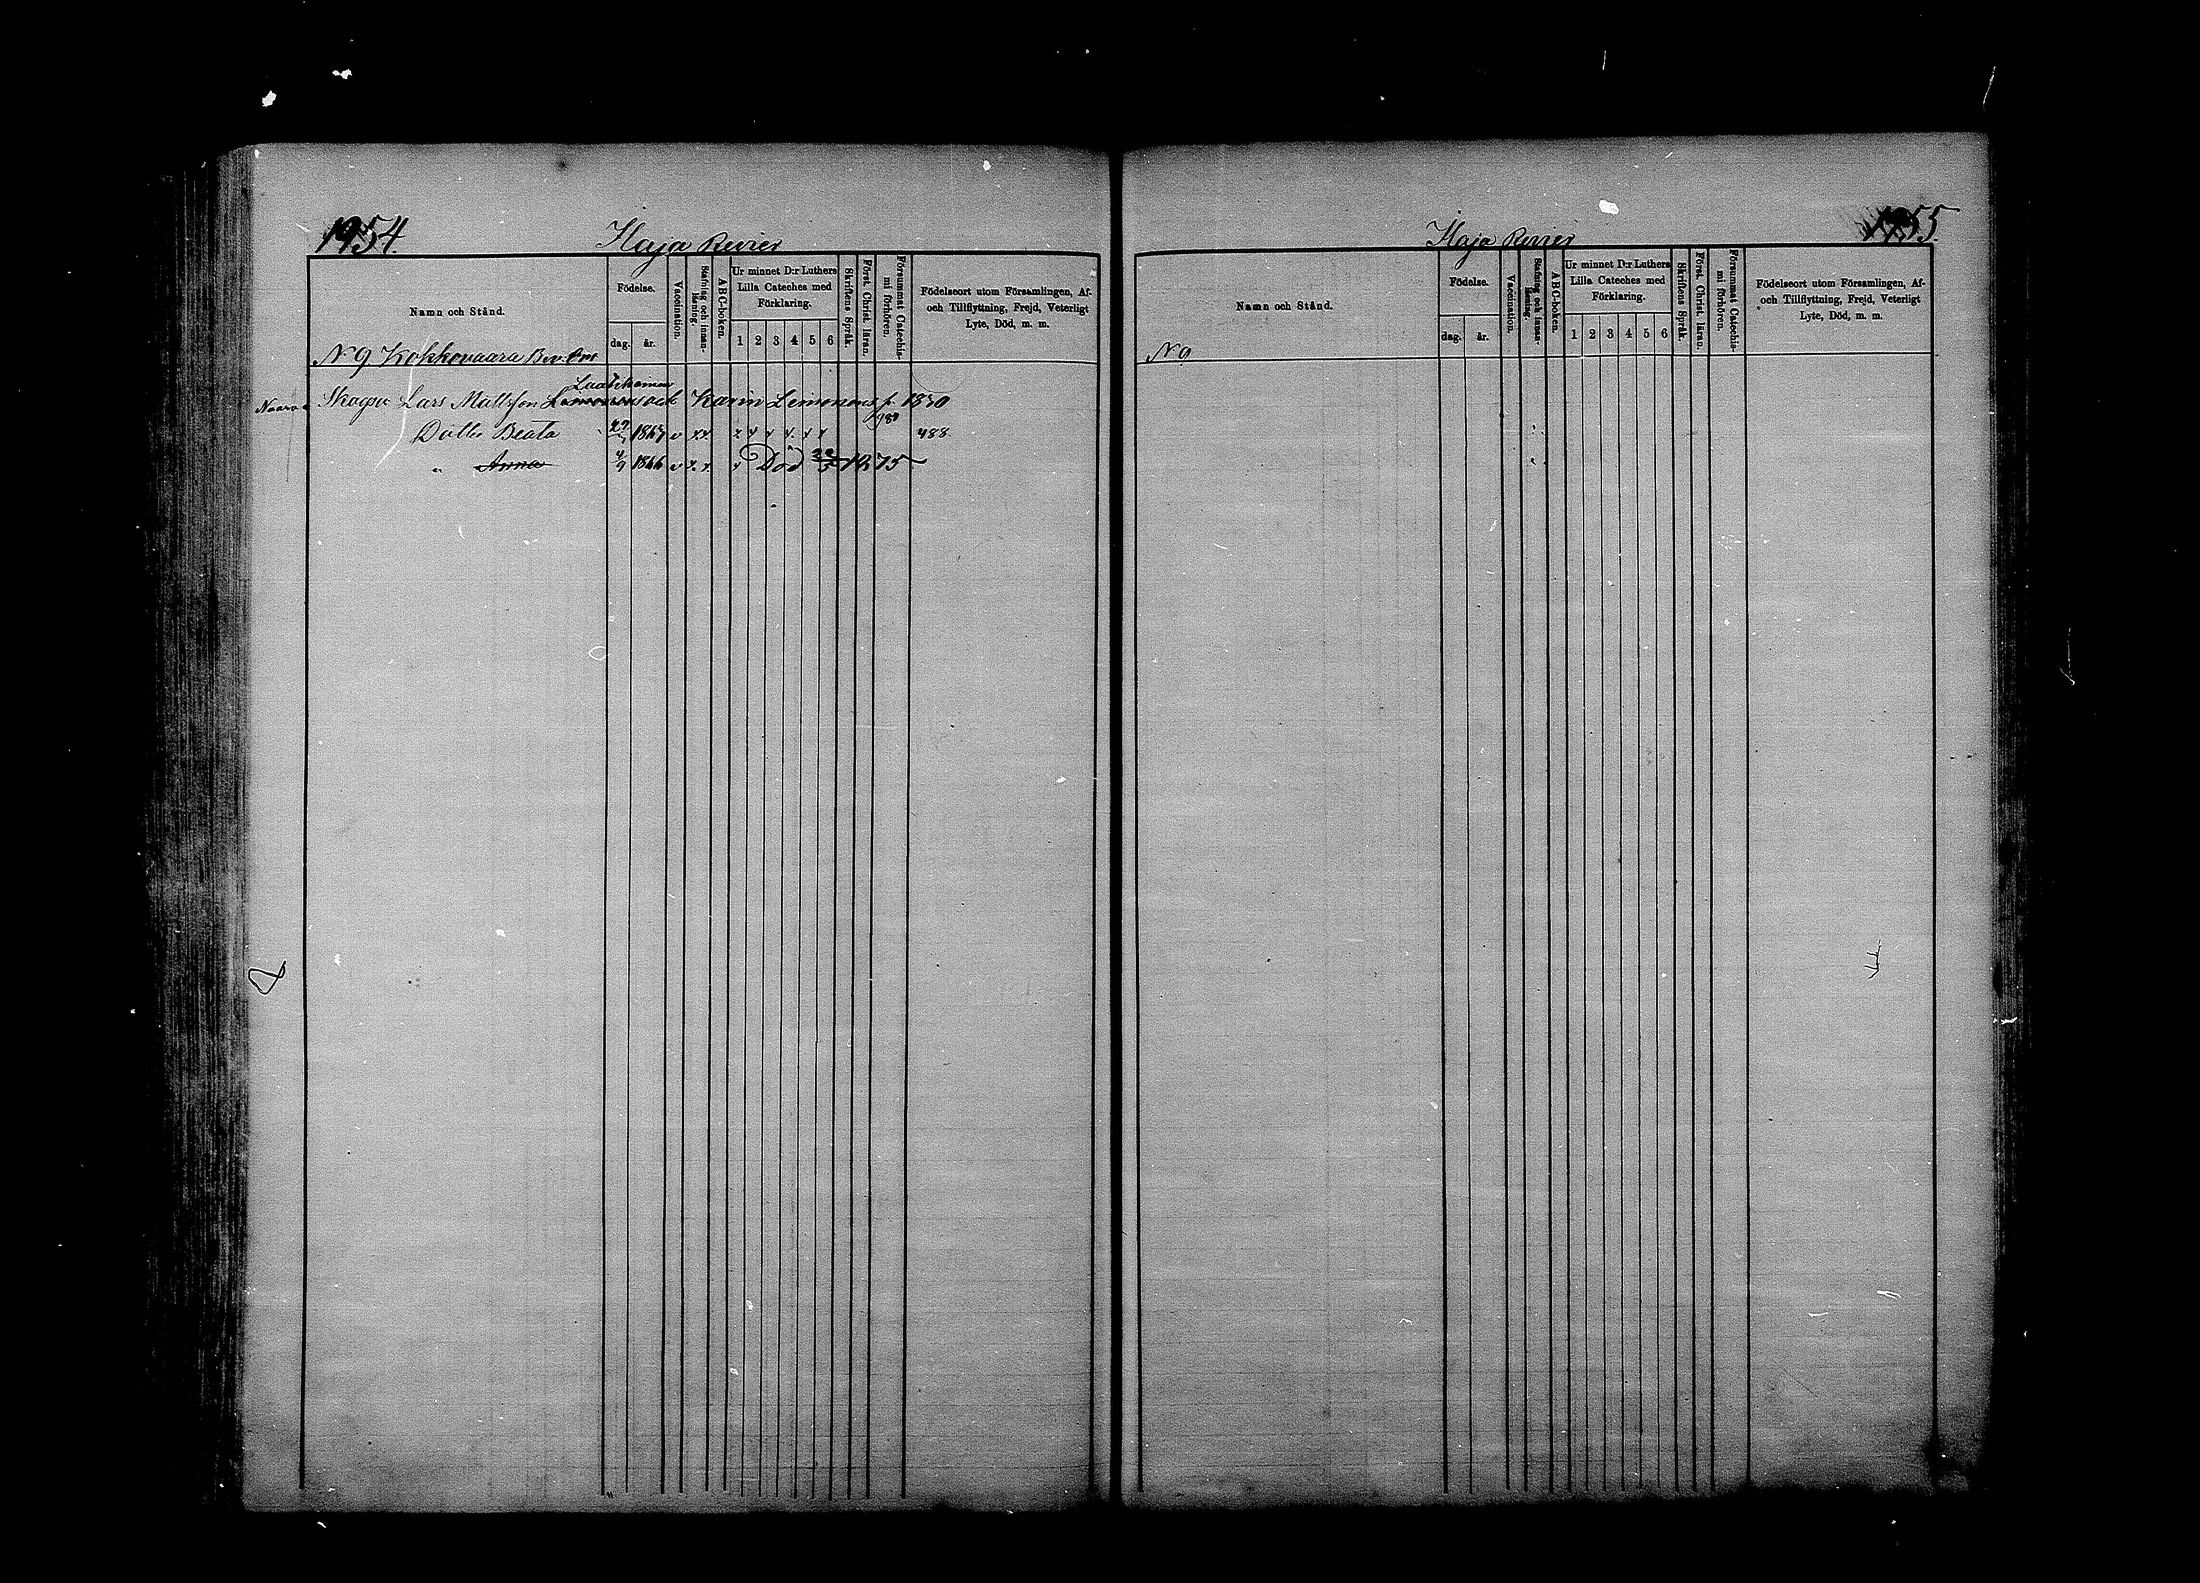 1954.
Haja Revier
Namn och Stånd.
Födelse.
dag. år.
Vaccination.
Stafning och innan-läsning.
ABC-boken.
Ur minnet D:r Luthers
Lilla Cateches med
Förklaring.
1 2 3 4 5 6
Skriftens Språk.
Först. Christ. läran.
Försummat Catechis-
mi förhören.
Födelseort utom Församlingen, Af-
och Tillflyttning, Frejd, Veterligt
Lyte, Död, m. m.
N 9 Kokkovaara
Laatikainen
Skogsv Lars Mattsson och Karin 1830
Dotter Beata 1863 v x x x x x x x x 488
" Anna 4/9 1866 v x x x Död 1875
1955.
Haja Revier
Namn och Stånd.
Födelse.
dag. år.
Vaccination.
Stafning och innan-läsning.
ABC-boken.
Ur minnet D:r Luthers
Lilla Cateches med
Förklaring.
1 2 3 4 5 6
Skriftens Språk.
Först. Christ. läran.
Försummat Catechis-
mi förhören.
Födelseort utom Församlingen, Af-
och Tillflyttning, Frejd, Veterligt
Lyte, Död, m. m.
N 9